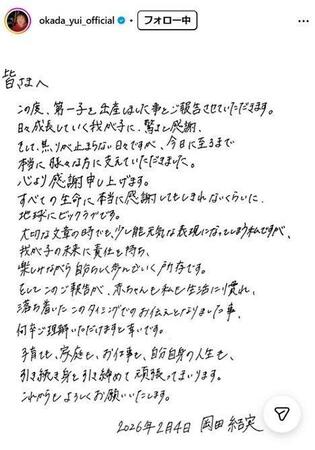 okada_yui_official
フォロー中
皆さまへ
この度、第一子を出産しました事をご報告させていただきます。
日々成長していく我が子に、驚きと感謝、
そして、焦りが止まらない日々ですが、今日に至るまで
本当に様々な方に支えていただきました。
心より感謝申し上げます。
すべての生命に本当に感謝してもしきれないくらいに、
地球にビックラブです。
大切な文章の時でも、少し能天気な表現になってしまう私ですが、
我が子の未来に責任を持ち、
楽しみながら自分らしく歩んでいく所存です。
そしてこのご報告が、赤ちゃんも私も生活に慣れ、
落ち着いたこのタイミングでのお伝えとなりました事、
何卒ご理解いただけますと幸いです。
子育ても、家庭も、お仕事も、自分自身の人生も、
引き続き身を引き締めて頑張ってまいります。
これからもよろしくお願いいたします。
2026年2月4日 岡田結実